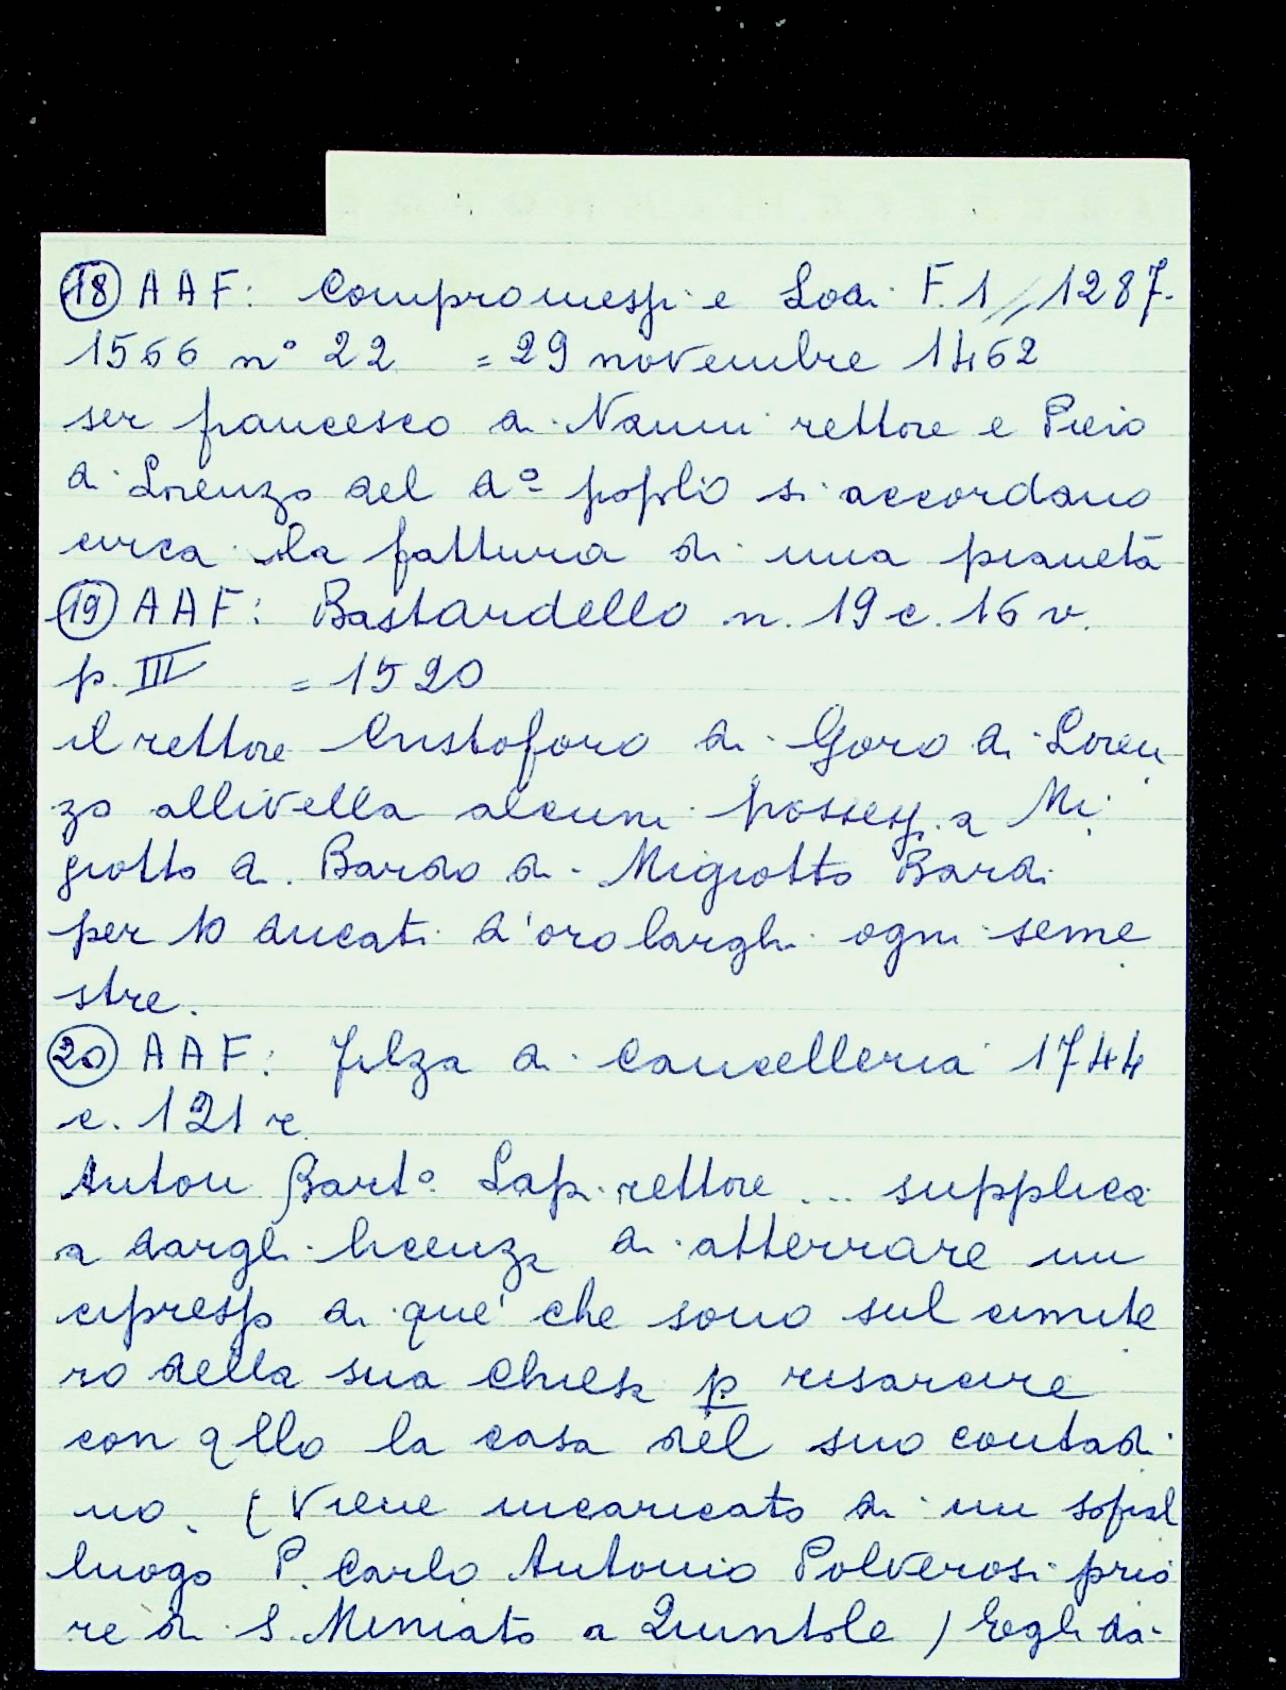 ⑱ AAF: Compromessi e Lodi F. 1 // 1287-
1566 n° 22 = 29 novembre 1462
ser francesco di Nanni rettore e Piero
di Lorenzo del d° poplo si accordano
circa la fattura di una pianeta
⑲ AAF: Bastardello n. 19 c. 16 v.
p. III = 1520
il rettore Cristoforo di Goro di Loren
zo allivella alcuni possess. a Mi
giotto di Bardo di Migiotto Bardi
per 10 ducati d'oro larghi ogni seme
stre.
⑳ AAF: Filza di Cancelleria 1744
c. 121 r
Anton Bart° Lapi rettore ... supplica
a dargli licenza di atterrare un
cipresso di que' che sono sul cimite
ro della sua chiesa p risarcire
con qllo la casa del suo contadi
no. (Viene incaricato di un
luogo P. Carlo Antonio Polverosi prio
re di S. Miniato a Quintole) Egli dà